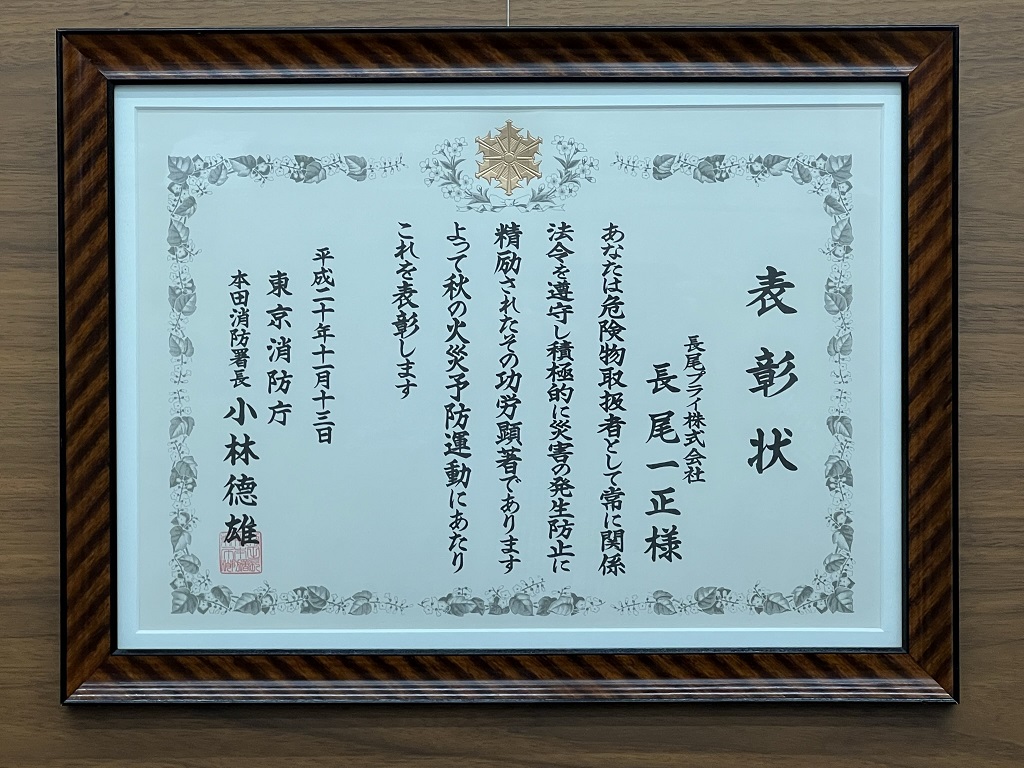 表彰状
長尾プライ株式会社
長尾一正様
あなたは危険物取扱者として常に関係
法令を遵守し積極的に災害の発生防止に
精励されたその功労顕著であります
よって秋の火災予防運動にあたり
これを表彰します
平成二十年十一月十三日
東京消防庁
本田消防署長 小林德雄